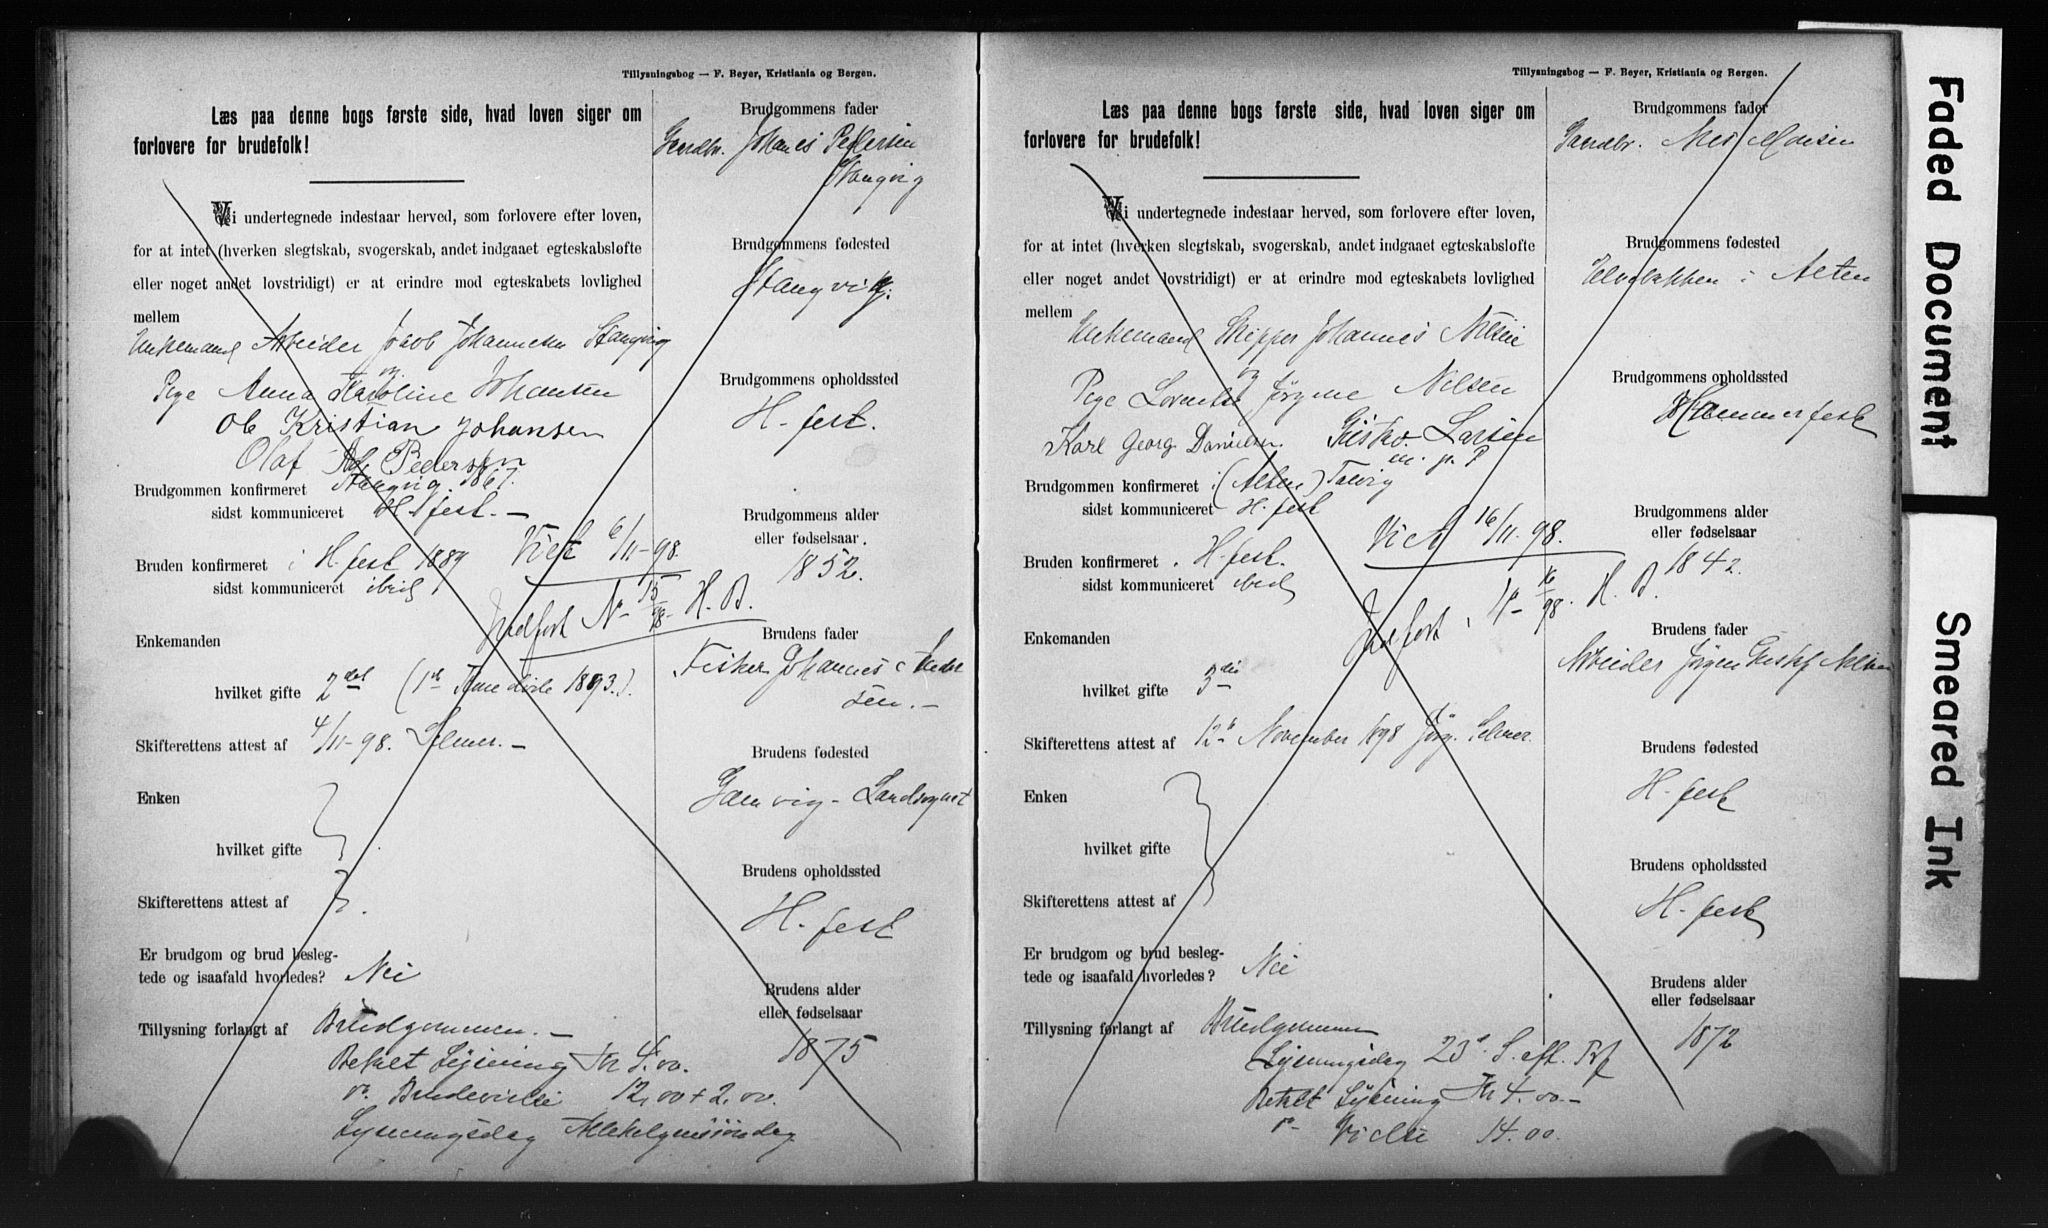 Tillysningsbog — F. Beyer, Kristiania og Bergen.
Læs paa denne bogs første side, hvad loven siger om
forlovere for brudefolk!
Vi undertegnede indestaar herved, som forlovere efter loven,
for at intet (hverken slegtskab, svogerskab, andet indgaaet egteskabsløfte
eller noget andet lovstridigt) er at erindre mod egteskabets lovlighed
mellem
Enkemand Arbeider Jakob Johannesen Stangvig
og
Pige Anna Karoline Johansen
Ole Kristian Johansen
Olaf Pedersen
Brudgommen konfirmeret Stangvig 1867.
sidst kommuniceret H.fest. —
Viet 6/11-98.
Bruden konfirmeret i H.fest 1889
sidst kommuniceret ibid
Indført No 15/98 H. B.
Enkemanden
hvilket gifte 2det (1ste Kone døde 1893.).
Skifterettens attest af 4/11-98. Selmer. —
Enken
hvilket gifte
Skifterettens attest af
Er brudgom og brud besleg-
tede og isaafald hvorledes? Nei
Tillysning forlangt af Brudgommen. —
Betalt Lysning Kr 4.00.
do Brudevielse 12.00 + 2.00.
Lysningsdag Allehelgensøndag
Brudgommens fader
Gaardbr. Johannes Pedersen
Stangvig
Brudgommens fødested
Stangvig.
Brudgommens opholdssted
H-fest.
Brudgommens alder
eller fødselsaar.
1852.
Brudens fader
Fisker Johannes Ander
sen. —
Brudens fødested
Gamvig - Landsognet
Brudens opholdssted
H-fest
Brudens alder
eller fødselsaar
1875
Tillysningsbog — F. Beyer, Kristiania og Bergen.
Læs paa denne bogs første side, hvad loven siger om
forlovere for brudefolk!
Vi undertegnede indestaar herved, som forlovere efter loven,
for at intet (hverken slegtskab, svogerskab, andet indgaaet egteskabsløfte
eller noget andet lovstridigt) er at erindre mod egteskabets lovlighed
mellem
Enkemand Skipper Johannes Nilsen
og
Pige Jørgine Nilsen
Karl Georg Danielsen Larsen
m. p. P
Brudgommen konfirmeret i (Alten) Talvig
sidst kommuniceret H. fest
Viet 16/11.98.
Bruden konfirmeret H-fest.
sidst kommuniceret ibid
Indført 16/98. H. B.
Enkemanden
hvilket gifte 3die
Skifterettens attest af 12te November 1898 Jørg. Selmer.
Enken
hvilket gifte
Skifterettens attest af
Er brudgom og brud besleg-
tede og isaafald hvorledes? Nei
Tillysning forlangt af Brudgommen
Lysningsdag 23d S. eft. Tref
Betalt Lysning Kr 4.00 —
do Vielse 14.00
Brudgommens fader
Gaardbr. Nils Monsen
Brudgommens fødested
Elvebakken i Alten
Brudgommens opholdssted
Hammerfest
Brudgommens alder
eller fødselsaar
1842.
Brudens fader
Arbeider Jørgen Gustaf Nilsen
Brudens fødested
H-fest
Brudens opholdssted
H-fest
Brudens alder
eller fødselsaar
1872
Faded Document
Smeared Ink